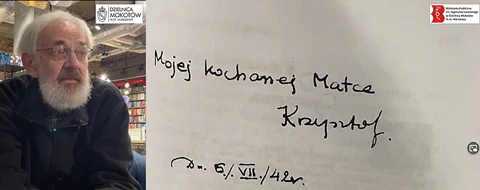 DZIELNICA
MOKOTÓW
M.ST. WARSZAWY
Biblioteka Publiczna
w Dzielnicy Mokotów
m.st. Warszawy
Mojej kochanej Matce
Krzysztof.
Dn. 6/VII./42r.